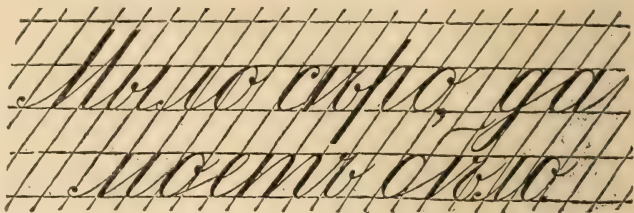 Мыло сѣро, да
моетъ бѣло.